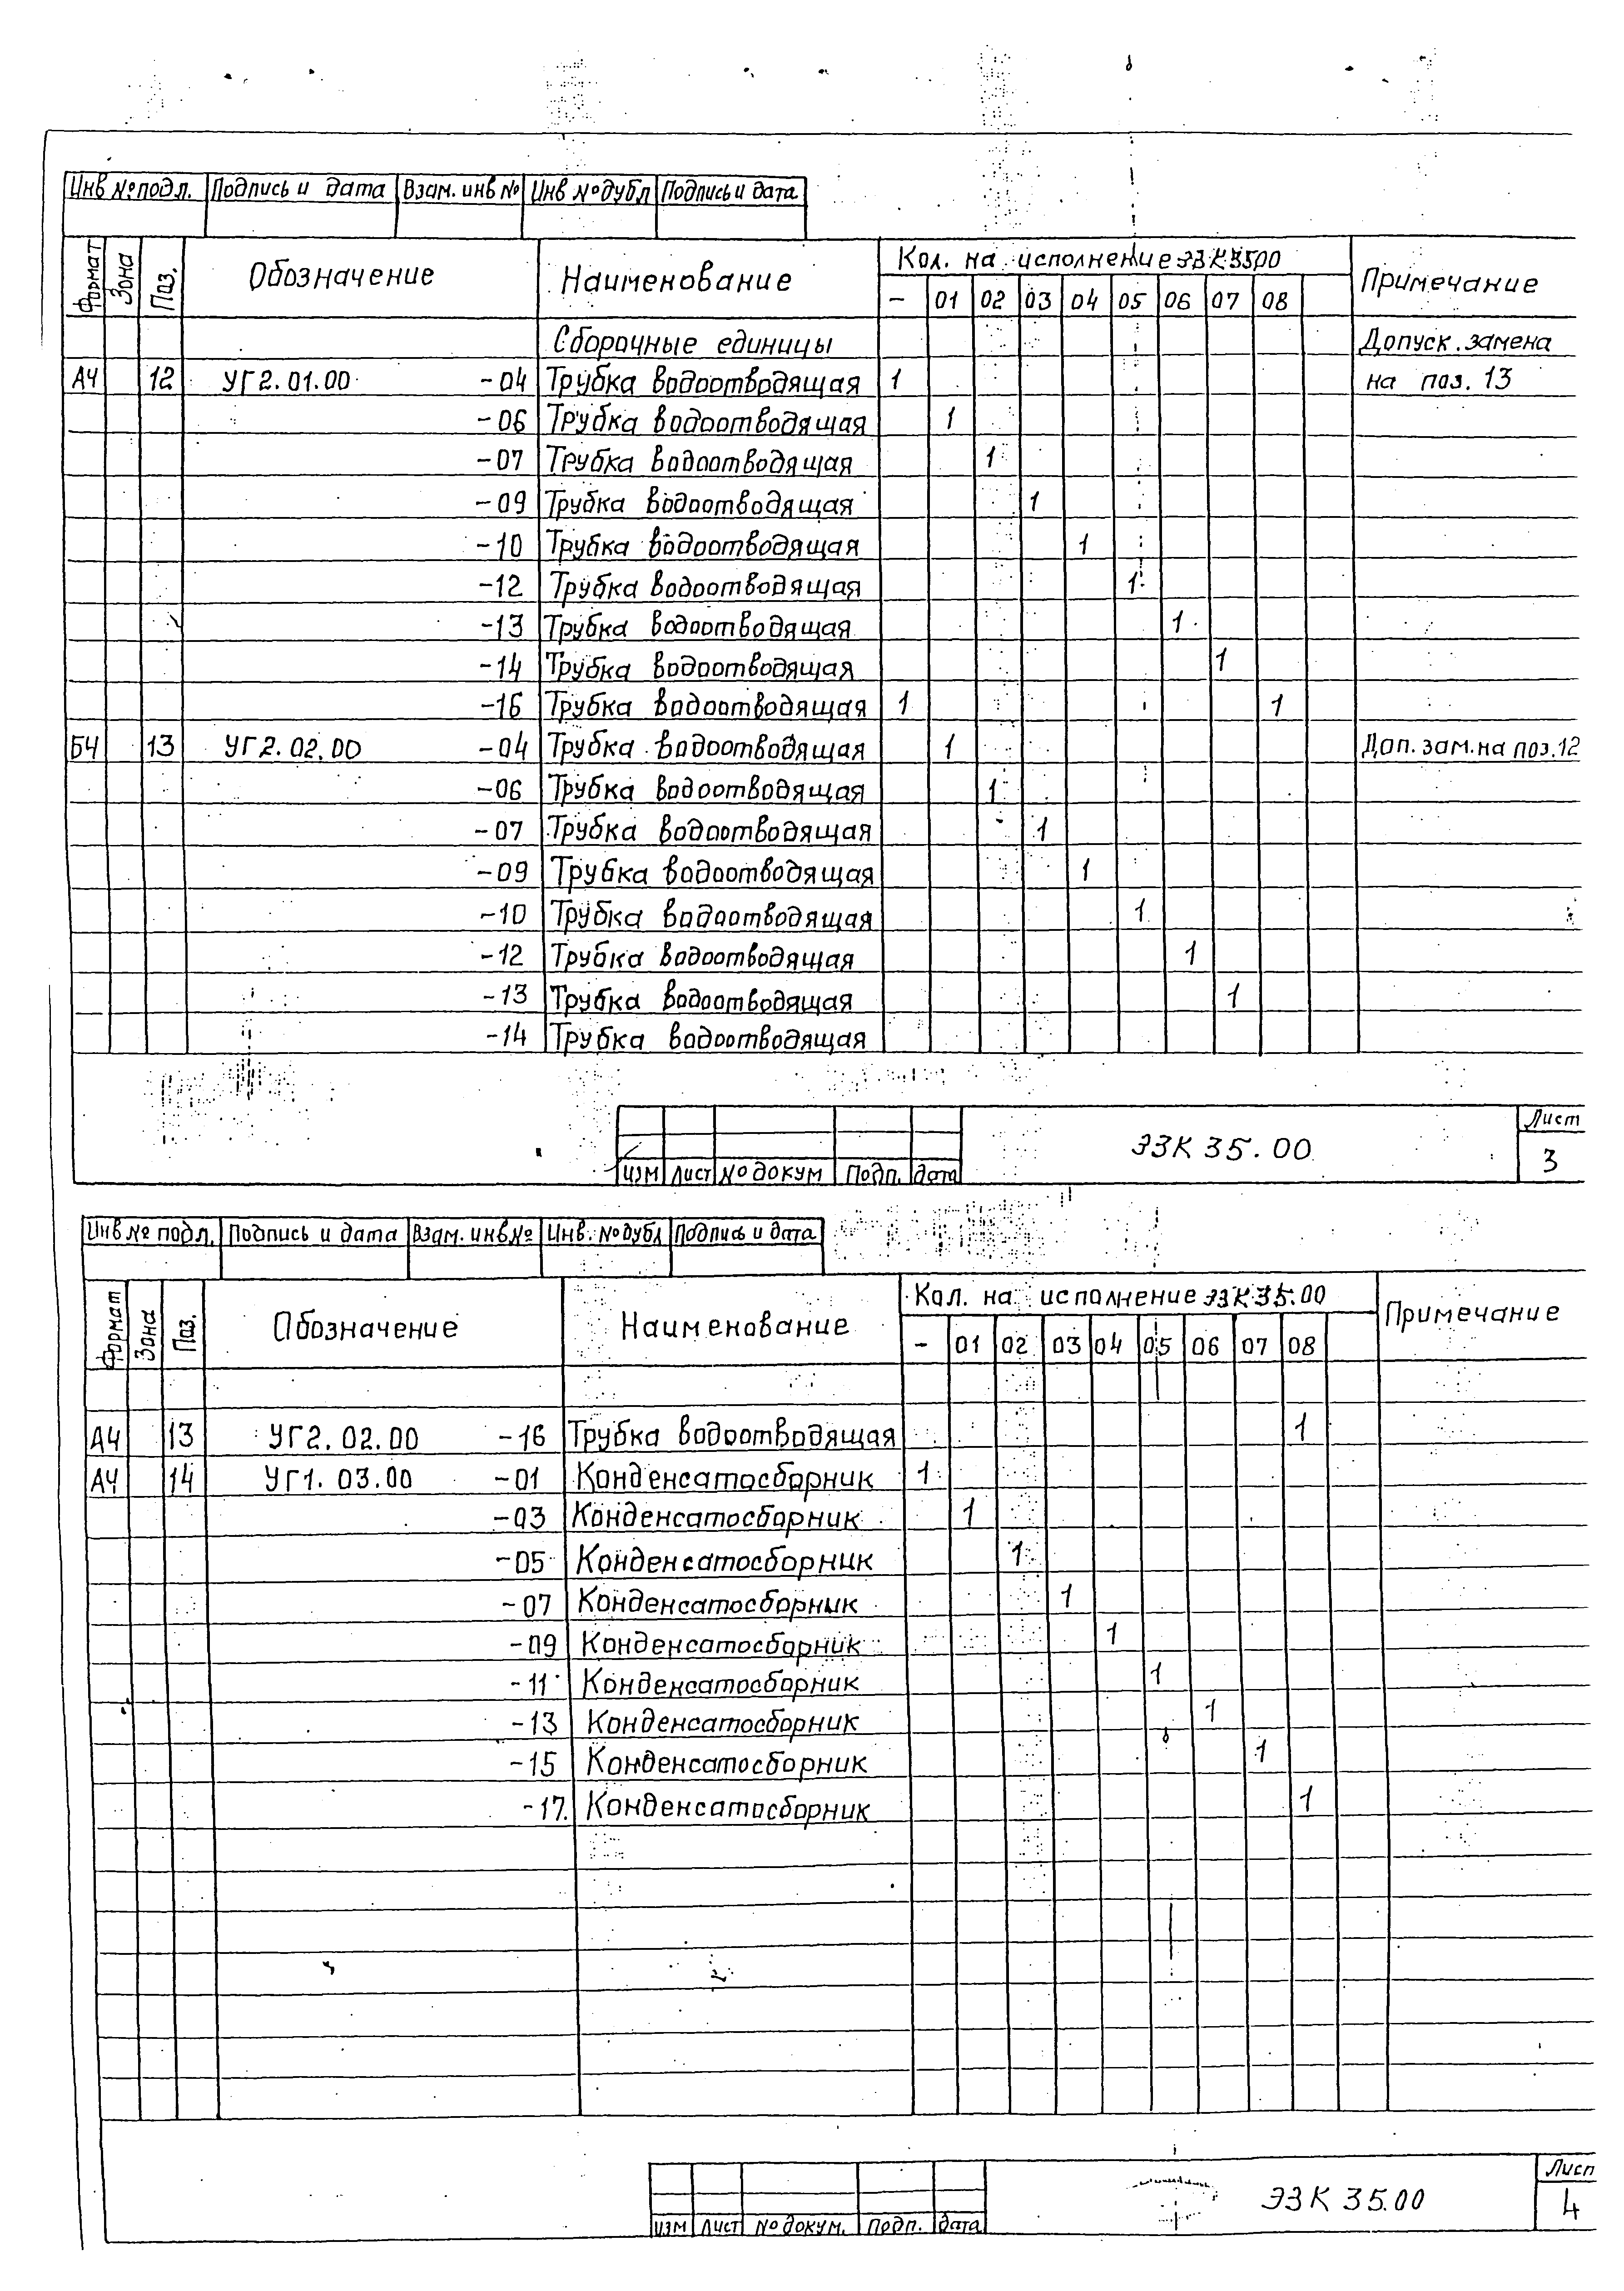 Инв № подл. Подпись и дата Взам. инв № Инв № дубл Подпись и дата
Формат Зона Поз. Обозначение Наименование Кол. на исполнение ЭЗК 35.00 Примечание
– 01 02 03 04 05 06 07 08
Сборочные единицы Допуск. замена
А4 12 УГ2.01.00 -04 Трубка водоотводящая 1 на поз. 13
-06 Трубка водоотводящая 1
-07 Трубка водоотводящая 1
-09 Трубка водоотводящая 1
-10 Трубка водоотводящая 1
-12 Трубка водоотводящая 1
-13 Трубка водоотводящая 1
-14 Трубка водоотводящая 1
-16 Трубка водоотводящая 1 1
БЧ 13 УГ2.02.00 -04 Трубка водоотводящая 1 Доп. зам. на поз. 12
-06 Трубка водоотводящая 1
-07 Трубка водоотводящая 1
-09 Трубка водоотводящая 1
-10 Трубка водоотводящая 1
-12 Трубка водоотводящая 1
-13 Трубка водоотводящая 1
-14 Трубка водоотводящая
ЭЗК 35.00 Лист
изм Лист № докум Подп. дата 3
Инв № подл. Подпись и дата Взам. инв № Инв. № дубл Подпись и дата
Формат Зона Поз. Обозначение Наименование Кол. на исполнение ЭЗК 35.00 Примечание
– 01 02 03 04 05 06 07 08
А4 13 УГ2.02.00 -16 Трубка водоотводящая 1
А4 14 УГ1.03.00 -01 Конденсатосборник 1
-03 Конденсатосборник 1
-05 Конденсатосборник 1
-07 Конденсатосборник 1
-09 Конденсатосборник 1
-11 Конденсатосборник 1
-13 Конденсатосборник 1
-15 Конденсатосборник 1
-17. Конденсатосборник 1
ЭЗК 35.00 Лисп
изм Лист № докум. Подп. дата 4